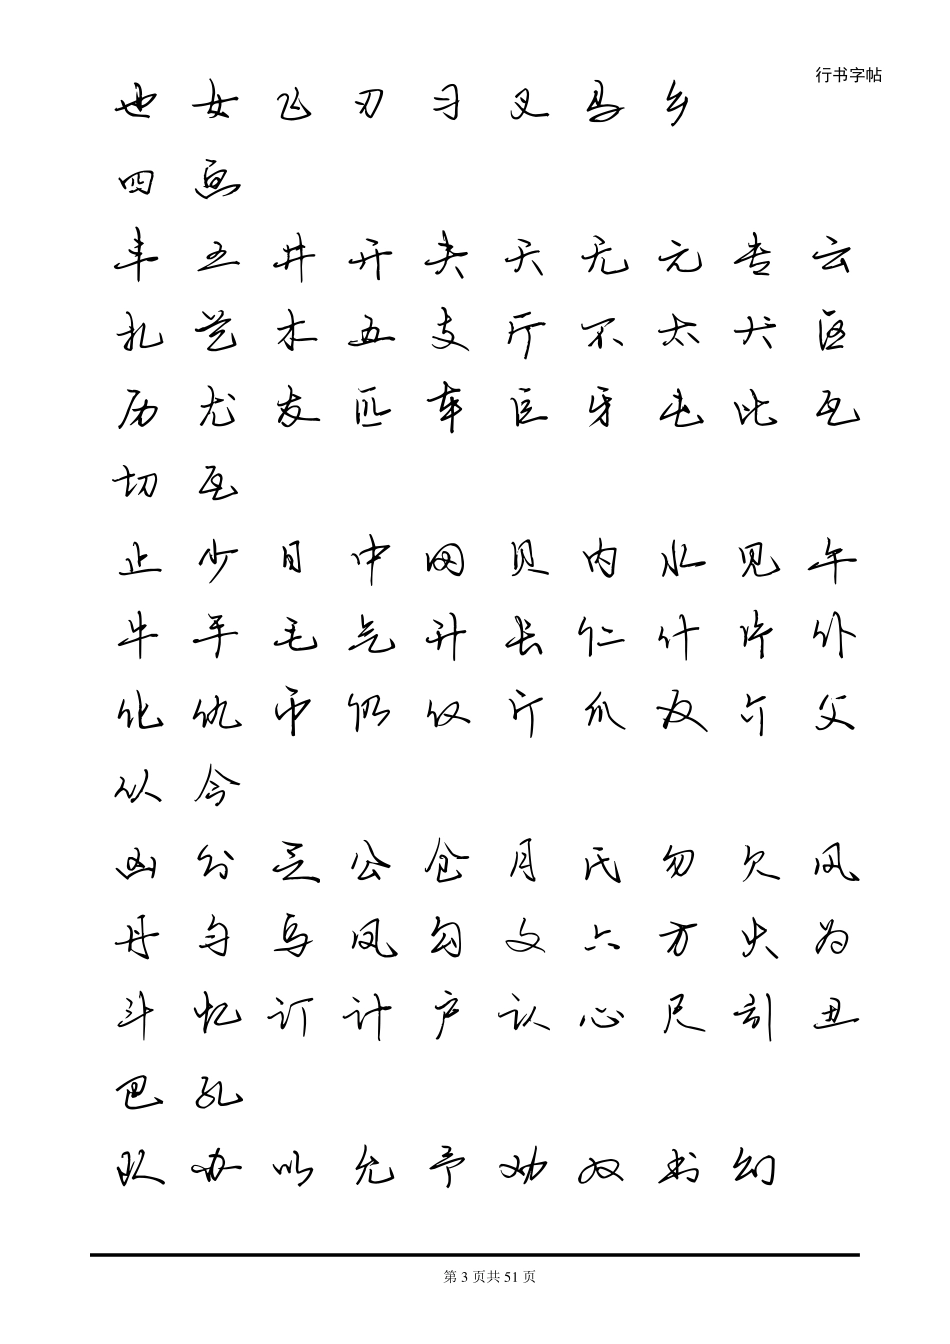 行书字帖
也 女 飞 刃 习 叉 马 乡
四 画
丰 王 井 开 夫 天 无 元 专 云
扎 艺 木 五 支 厅 不 太 犬 区
历 尤 友 匹 车 巨 牙 屯 比 互
切 瓦
止 少 日 中 冈 贝 内 水 见 午
牛 手 毛 气 升 长 仁 什 片 仆
化 仇 币 仍 仅 斤 爪 反 介 父
从 今
凶 分 乏 公 仓 月 氏 勿 欠 风
丹 匀 乌 凤 勾 文 六 方 火 为
斗 忆 订 计 户 认 心 尺 引 丑
巴 孔
队 办 以 允 予 劝 双 书 幻
第 3 页共 51 页